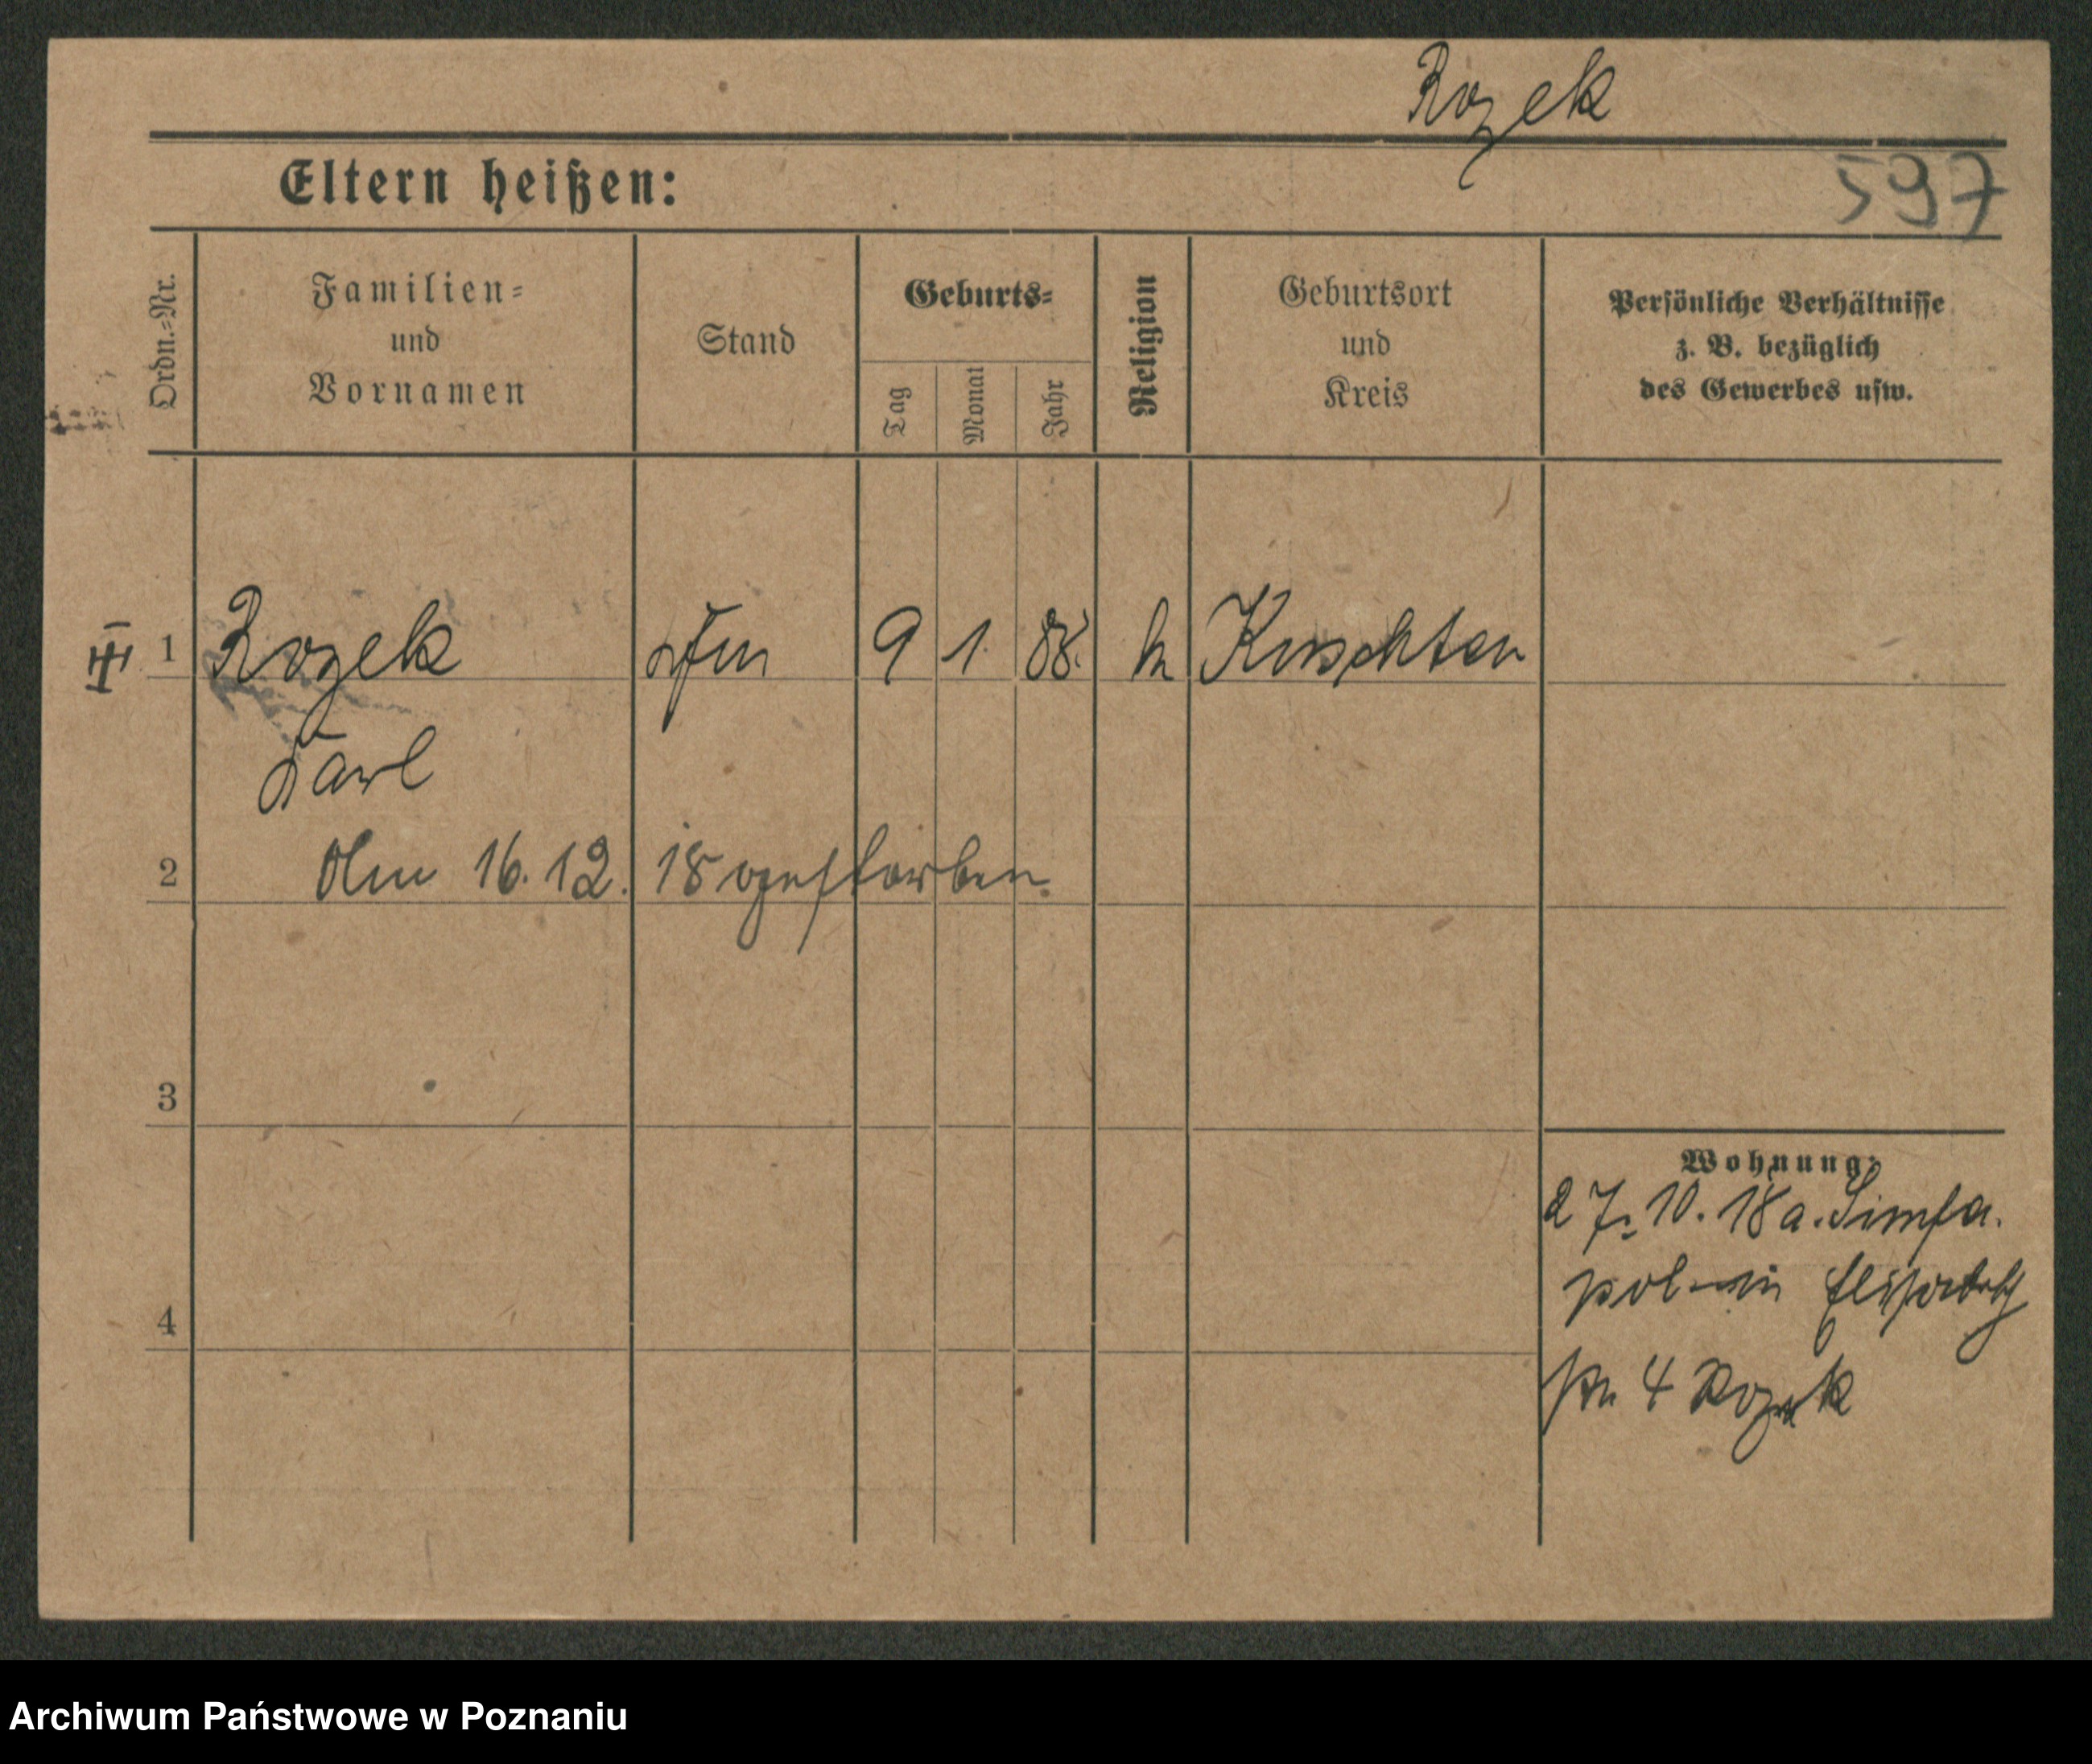 Rozek
597
Eltern heißen:
Ordn.=Nr.
Familien=
und
Vornamen
Stand
Geburts=
Tag
Monat
Jahr
Religion
Geburtsort
und
Kreis
Persönliche Verhältnisse
z. B. bezüglich
des Gewerbes usw.
III 1 Rozek 9 1. 88. Kuschten
Karl
2 Am 16. 12. 18 gestorben.
3
Wohnung:
27. 10. 18 a.
4
4 Rozek
Archiwum Państwowe w Poznaniu